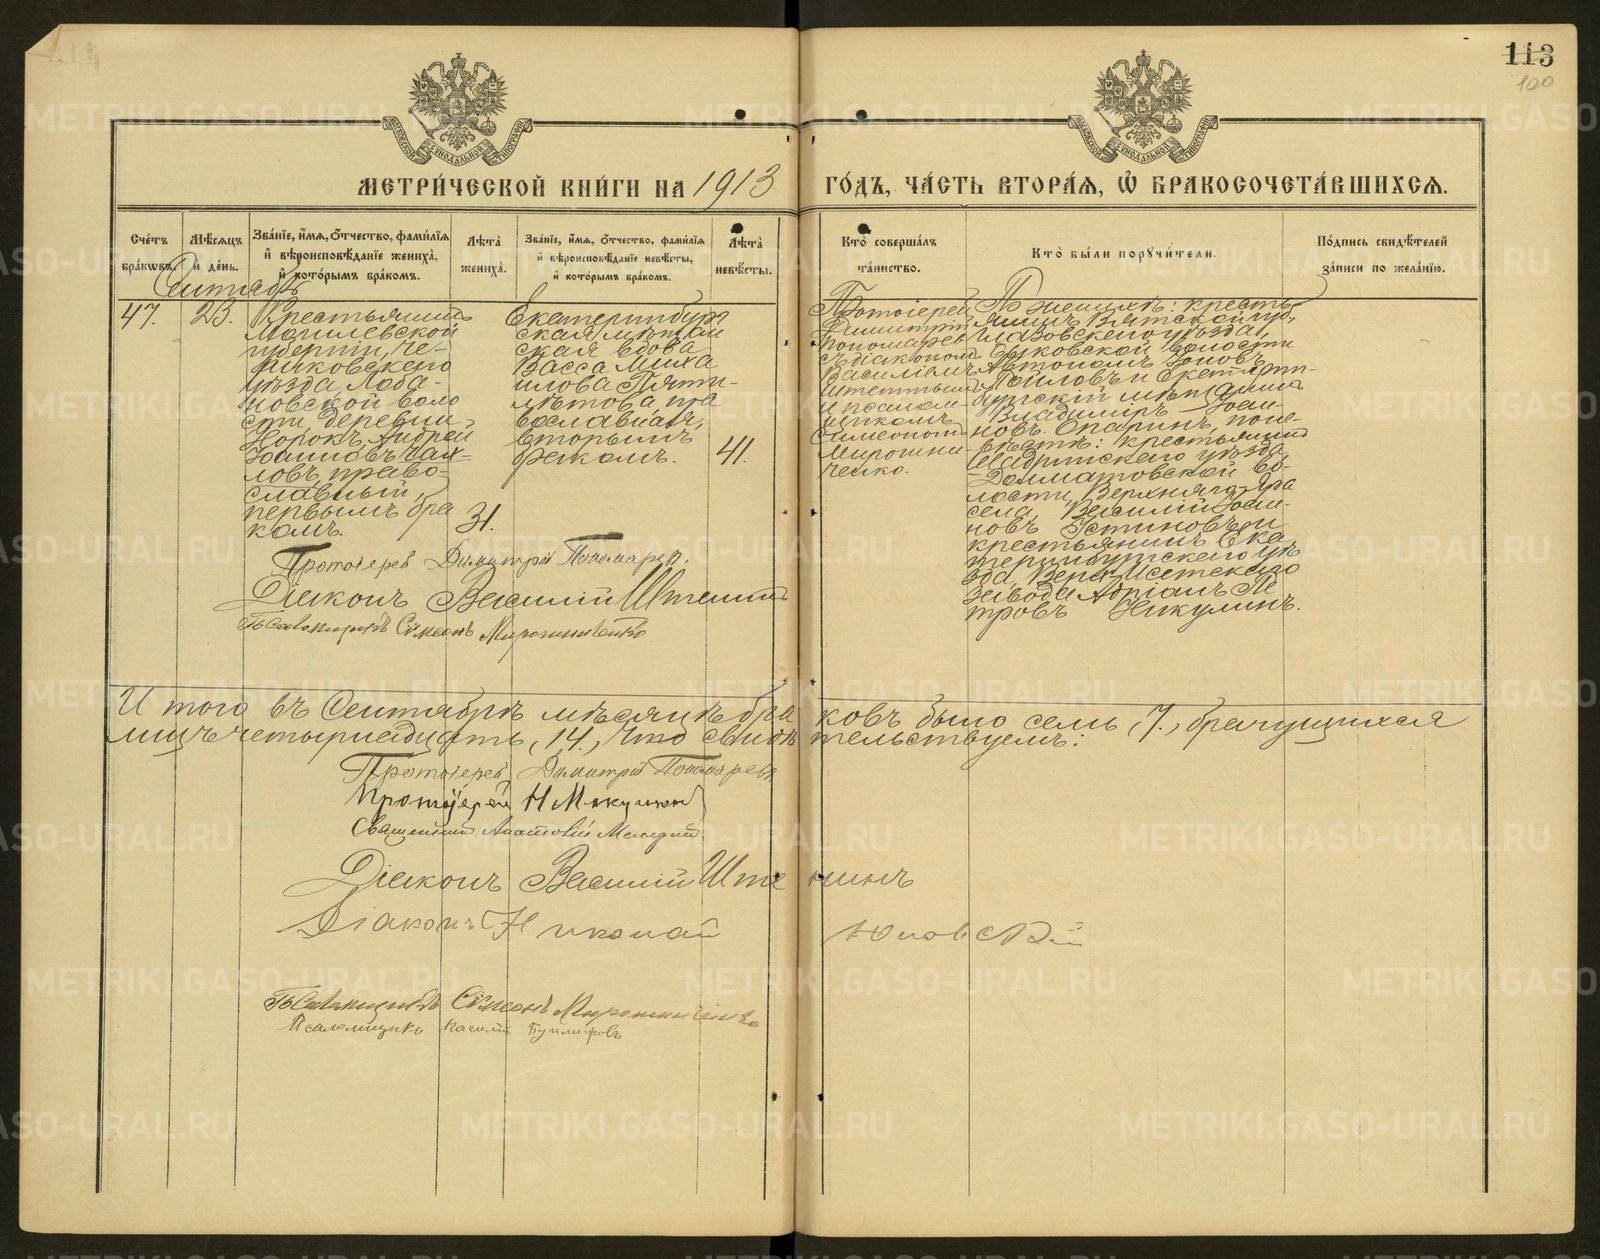 113
100
МЕТРИ́ЧЕСКОЙ КНИ́ГИ НА 1913 ГО́ДЪ, ЧА́СТЬ ВТОРА́Я, Ѿ БРАКОСОЧЕТА́ВШИХСЯ.
Сче́тъ бра́кѡвъ.
Мѣ́сяцъ и҆ де́нь.
Зва́нїе, и҆́мя, ѻ҆́тчество, фами́лїя и҆ вѣроисповѣ́данїе жениха̀, и҆ кото́рымъ бра́комъ.
Лѣта̀ жениха̀.
Зва́нїе, и҆́мя, ѻ҆́тчество, фами́лїя и҆ вѣроисповѣ́данїе невѣ́сты, и҆ кото́рымъ бра́комъ.
Лѣта̀ невѣ́сты.
Кто̀ соверша́лъ та́инство.
Кто̀ бы́ли порꙋчи́тели.
По́дпись свидѣ́телей за́писи по жела́нїю.
Сентябрь
47.
23.
Крестьянинъ
Могилевской
губерніи, Че-
риковскаго
уѣзда Лоба-
новской воло
сти деревни
Норокъ, Андрей
Іоанновъ Чах-
ловъ, право-
славный,
первымъ бра
комъ.
31.
Екатеринбург
ская мѣщан
ская вдова
Васса Миха
илова Пяти-
лѣтова пра
вославная,
вторымъ
бракомъ.
41.
Протоіерей
Димитрій
Пономаревъ
съ діакономъ
Василіемъ
Штеннинымъ
и псалом-
щикомъ
Симеономъ
Мирошни-
ченко.
По женихѣ: кресть-
янинъ Вятской губ,
Глазовскаго уѣзда,
волости
Автономъ Іоновъ
и Екатерин-
бургскій мѣщанинъ
Владиміръ Іоан-
новъ Опаринъ, по не-
вѣстѣ: крестьянинъ
Шадринскаго уѣзда
Долматовской во-
лости, Верхняго-Яра
села Василій Іоан-
новъ Устиновъ и
крестьянинъ Ека
теринбургскаго уѣ
зда, Верх-Исетскаго
завода Адріанъ Пе
тровъ Никулинъ.
Протоіерей Димитрій Пономаревъ.
Діаконъ Василій Штеннинъ
Псаломщикъ Сѷмеонъ Мирошниченко
Итого въ Сентябрѣ мѣсяцѣ браковъ было семь, 7., брачущихся
лицъ четырнадцать, 14., что свидѣтельствуемъ:
Протоіерей Димитрій Пономаревъ
Протоіерей Н Микушинъ
Священникъ Анатолій
Діаконъ Василій Штеннинъ
Діаконъ Николай Юновскій
Псаломщикъ Сѷмеонъ Мирошниченко
Псаломщикъ Василій
METRIKI.GASO-URAL.RU